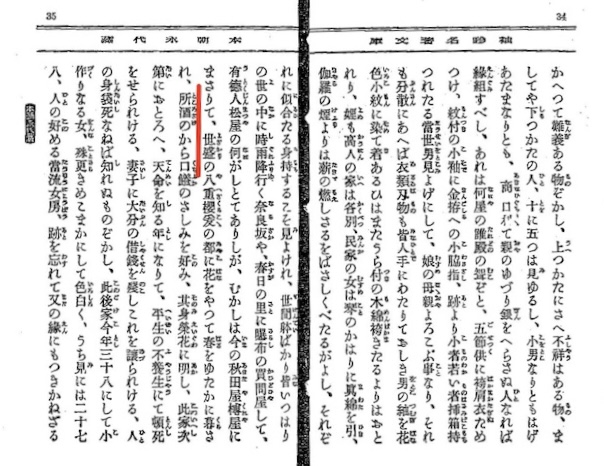 34
袖珍名著文庫
かへつて難義ある物ぞかし、上つかたにさへ不祥はある物、ま
してや下つかたの人、十に五つは見ゆるし、小男なりともはげ
あたまなりとも、商口利て親のゆづり銀をへらさぬ人なれば
縁組すべし、あれは何屋の誰殿の聟ぞと、五節供に袴肩衣ため
つけ、紋付の小袖に金拵への小脇指、跡より小者若い者挿箱持
つれたる當世男見よげにして、娘の母親よろこぶ事なり、それ
も分散にあへば衣類刃物も皆人手にわたりておしき男の紬を花
色小紋に染て着あるひはまたうら付の木綿袴きたるよりはと
れり、姪も高人の家は各別、民家の女は琴のかはりに眞綿を引、
伽羅の煙よりは薪の燃しさるをばさしくべたるがよし、それぞ
35
本朝永代藏
れに似合たる身持するこそ見よけれ、世間躰ばかり皆いつはり
の世の中に時雨降行く、奈良坂や、春日の里に曝布の買問屋して、
有徳人松屋の何がしとてありしが、むかしは今の秋田屋榑屋に
まさりて、世盛の八重櫻爰の都に花をやつて春をゆたかに暮さ
れ、所酒のから口鱶のさしみを好み、其身榮花に明し、此家次
第におとろへ、天命を知る年になりて、平生の不養生にて頓死
をせられける、妻子に大分の借錢を殘しこれを讓られける、人
の身袋死なねば知れぬものぞかし、此後家今年三十八にして小
作りなる女、殊更きめこまかにして色白く、うち見には二十七
八、人の好める當流女房、跡を忘れて又の縁にもつきかねざる